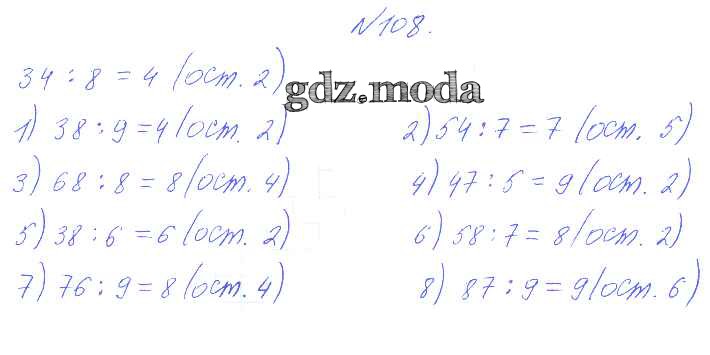 №108.
34 : 8 = 4 (ост. 2)
gdz.moda
1) 38 : 9 = 4 (ост. 2) 2) 54 : 7 = 7 (ост. 5)
3) 68 : 8 = 8 (ост. 4) 4) 47 : 5 = 9 (ост. 2)
5) 38 : 6 = 6 (ост. 2) 6) 58 : 7 = 8 (ост. 2)
7) 76 : 9 = 8 (ост. 4) 8) 87 : 9 = 9 (ост. 6)